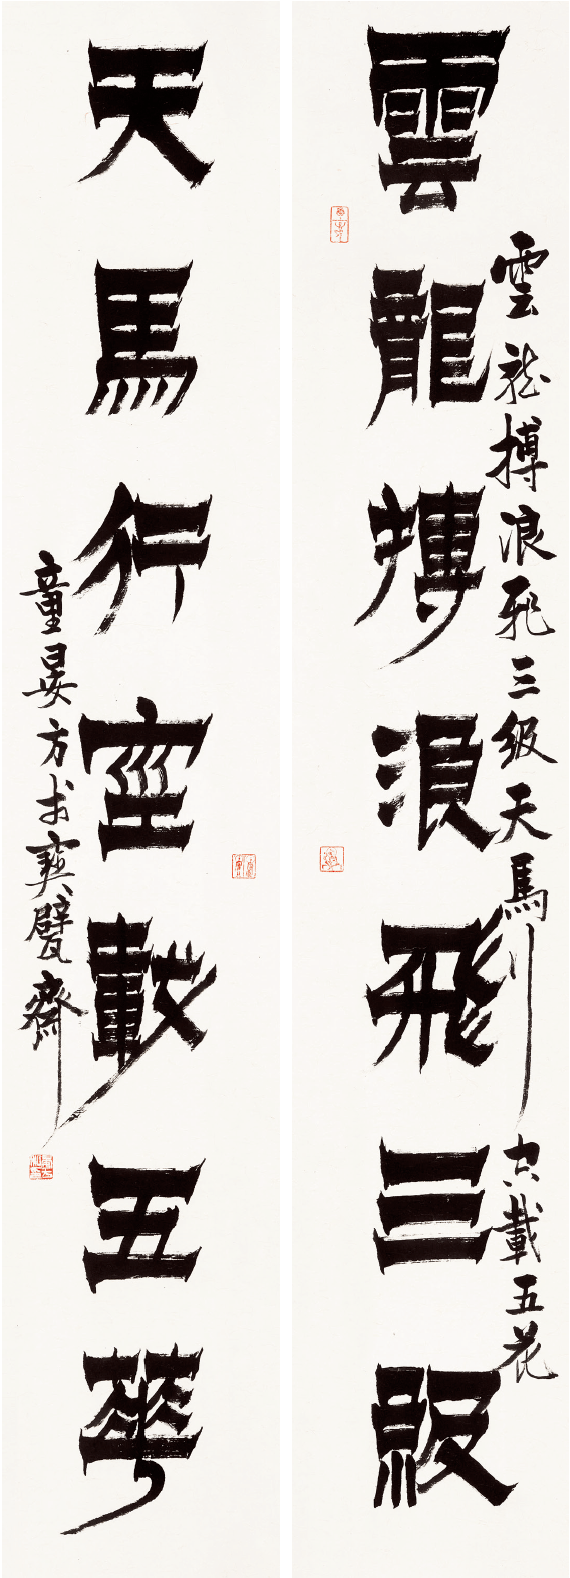 雲龍搏浪飛三級
雲龍搏浪飛三級天馬行空載五花
天馬行空載五華
童晏方書寶甓齋